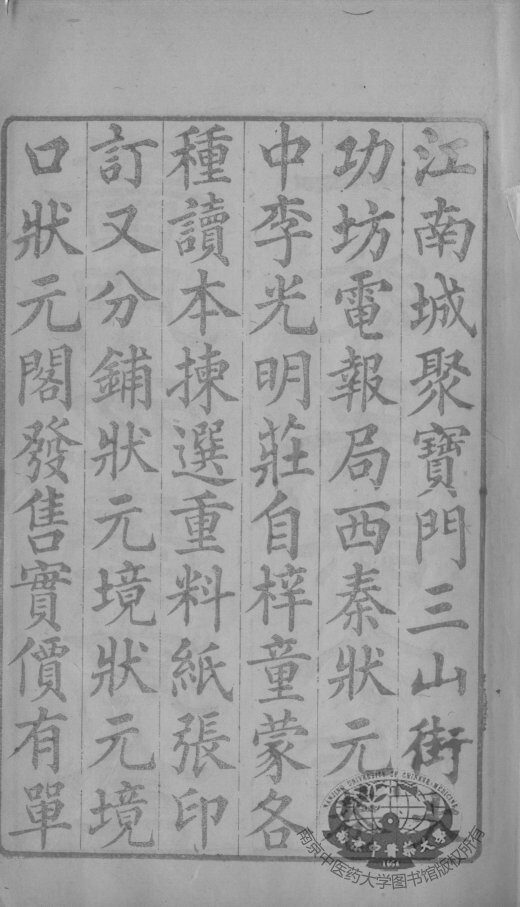 江南城聚寶門三山街
功坊電報局西秦狀元
中李光明莊自梓童蒙各
種讀本揀選重料紙張印
訂又分鋪狀元境狀元境
口狀元閣發售實價有單
南京中医药大学图书馆版权所有
NANJING UNIVERSITY OF CHINESE MEDICINE
南京中医药大学
1954